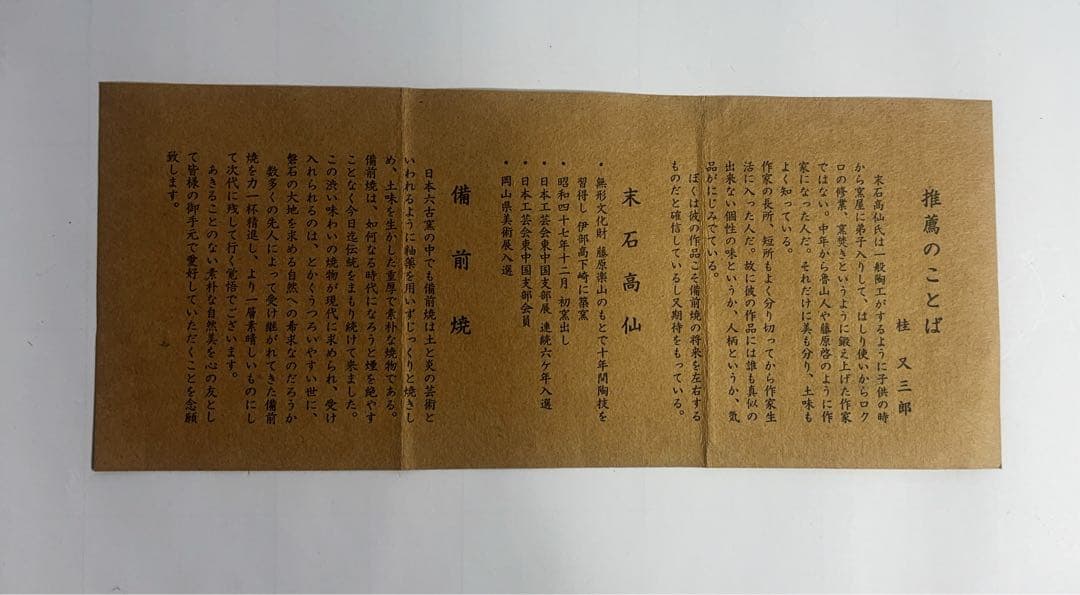 推薦のことば
桂又三郎
末石高仙氏は一般陶工がするように子供の時
から窯屋に弟子入りして、はしり使いからロク
ロの修業、窯焚きというように鍛え上げた作家
ではない。中年から魯山人や藤原啓のように作
家になった人だ。それだけに美も分り、土味も
よく知っている。
作家の長所、短所もよく分り切ってから作家生
活に入った人だ。故に彼の作品には誰も真似の
出来ない個性の味というか、人柄というか、気
品がにじみでている。
ぼくは彼の作品こそ備前焼の将来を左右する
ものだと確信しているし又期待をもっている。
末石高仙
・無形文化財 藤原楽山のもとで十年間陶技を
習得し 伊部高下崎に築窯
・昭和四十七年十二月 初窯出し
・日本工芸会東中国支部展 連続六ケ年入選
・日本工芸会東中国支部会員
・岡山県美術展入選
備前焼
日本六古窯の中でも備前焼は土と炎の芸術と
いわれるように釉薬を用いずじっくりと焼きし
め、土味を生かした重厚で素朴な焼物である。
備前焼は、如何なる時代になろうと煙を絶やす
ことなく今日迄伝統をまもり続けて来ました。
この渋い味わいの焼物が現代に求められ、受け
入れられるのは、とかくうつろいやすい世に、
磐石の大地を求める自然への希求なのだろうか
数多くの先人によって受け継がれてきた備前
焼を力一杯精進し、より一層素晴しいものにし
て次代に残して行く覚悟でございます。
あきることのない素朴な自然美を心の友とし
て皆様の御手元で愛好していただくことを念願
致します。